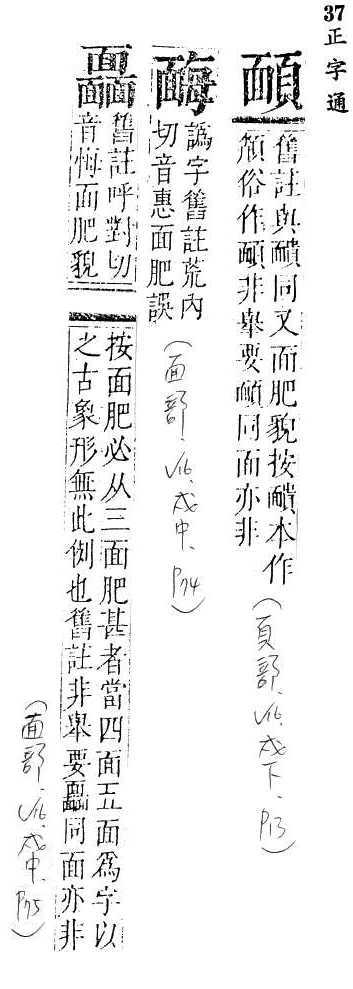 37正字通
舊註與靧同又面肥貌按靧本作
頮俗作非舉要同面亦非
(頁部.V16.戌下.P13)
䩈
譌字舊註荒內
切音惠面肥誤
(面部.V16.戌中.P74)
舊註呼對切
音悔面肥貌
按面肥必从三面肥甚者當四面五面爲字以
之古象形無此例也舊註非舉要同面亦非
(面部.V16.戌中.P75)